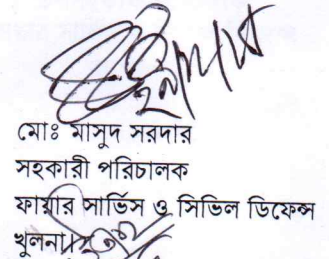 মোঃ মাসুদ সরদার
সহকারী পরিচালক
ফায়ার সার্ভিস ও সিভিল ডিফেন্স
খুলনা।